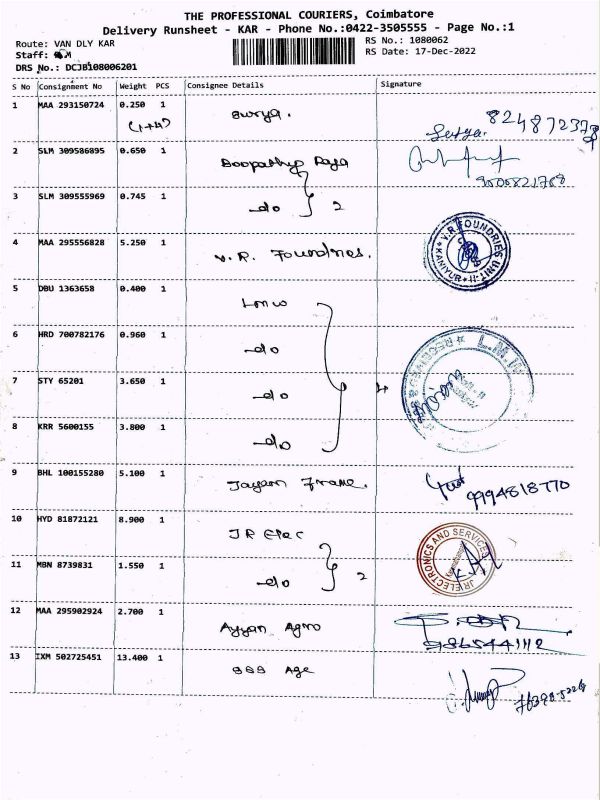 THE PROFESSIONAL COURIERS, Coimbatore
Delivery Runsheet - KAR - Phone No.:0422-3505555 - Page No.:1
Route: VAN DLY KAR RS No.: 1080062
Staff: RS Date: 17-Dec-2022
DRS No.: DCJB108006201
S No Consignment No Weight PCS Consignee Details Signature
1 MAA 293150724 0.250 1 Surya.
(1+4)
2 SLM 309586895 0.650 1 Boopathy Raja
9500821768
3 SLM 309555969 0.745 1 -do 2
4 MAA 295556828 5.250 1 V.R. Foundries. V.R.FOUNDRIES UNIT-II KANIYUR
5 DBU 1363658 0.400 1 Lmw
6 HRD 700782176 0.960 1 -do L.M.W
7 STY 65201 3.650 1 -do 4
8 KRR 5600155 3.800 1 -do
9 BHL 100155280 5.100 1 Jayam Frame. 9994818770
10 HYD 81872121 8.900 1 JR Elec JR ELECTRONICS AND SERVICES
11 MBN 8739831 1.550 1 -do 2
12 MAA 295902924 2.700 1 Ayyan Agro
13 IXM 502725451 13.400 1